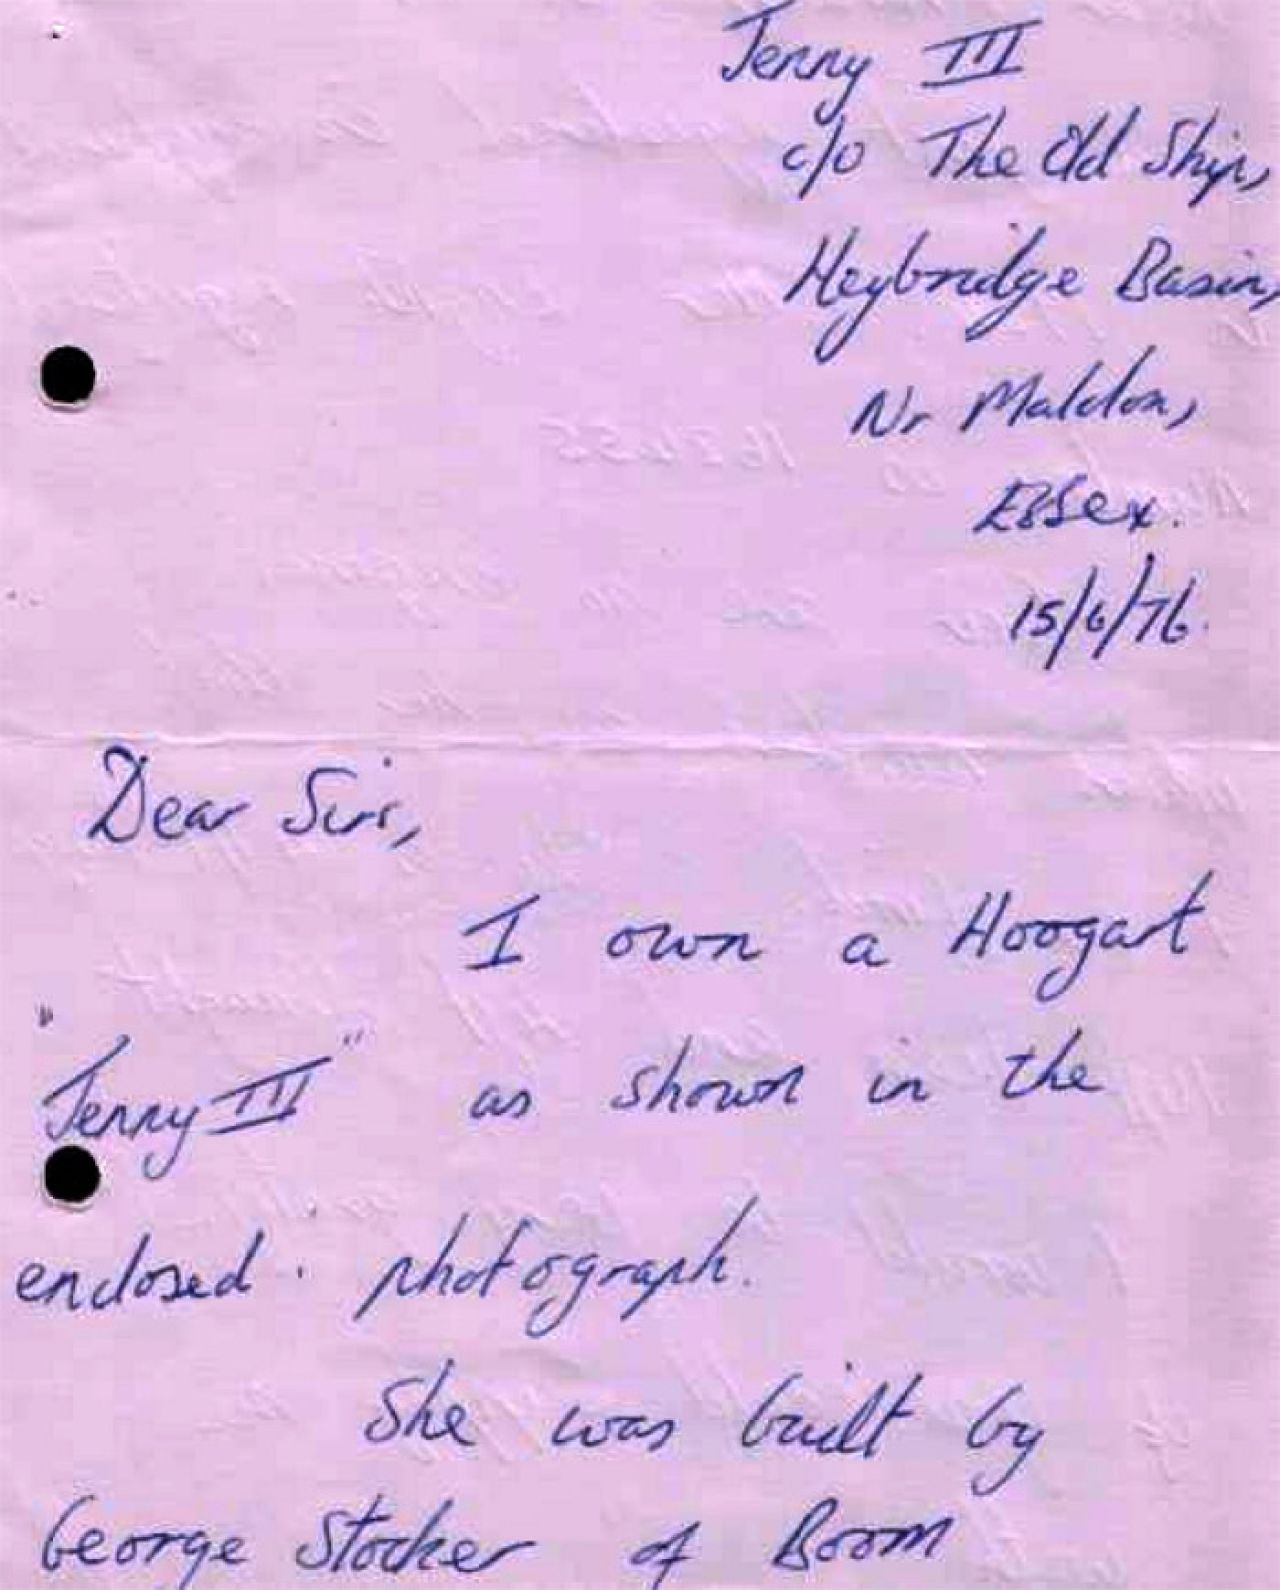 Jenny III
c/o The Old Ship,
Heybridge Basin,
Nr Maldon,
Essex.
15/6/76.
Dear Sirs,
I own a Hoogart
"Jenny III" as shown in the
enclosed photograph.
She was built by
George Stocker of Boom